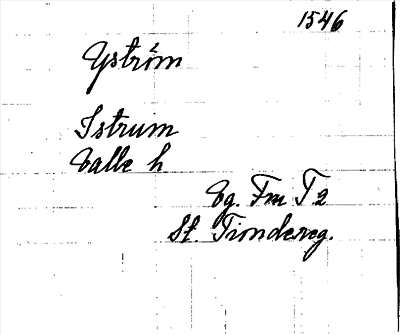 1546
Yström
Istrum
Valle h
Vg. Fm T 2
St. Tiondereg.